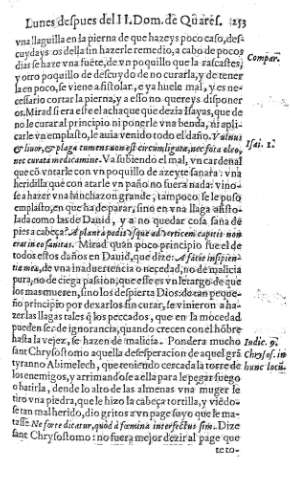 Lunes despues del II. Dom. de Quares. 253
vna llaguilla en la pierna de que hazeys poco caso, des-
cuydays os della sin hazerle remedio, a cabo de pocos
dias se haze vna fuẽte, de vn poquillo que la rascastes,
y otro poquillo de descuydo de no curarla, y de tener
la en poco, se viene a fistolar, e ya huele mal, y es ne-
cessario cortar la pierna, y a esso no quereys disponer
os. Mirad si era esse el achaque que dezia Isayas, que de
no le curar al principio ni ponerle vna benda, ni apli-
carle vn emplasto, le auia venido todo el daño. Vulnus
& liuor, & plaga tumens non est circumligata, nec fota oleo,
nec curata medicamine. Va subiendo el mal, vn cardenal
que cõ votarle con vn poquillo de azeyte sanara: vna
heridilla que con atarle vn paño no fuera nada: vino-
se a hazer vna hinchazon grande, tampoco se le puso
emplasto, en que ha de parar, sino en vna llaga afisto-
lada como las de Dauid, y a no quedar cosa sana de
pies a cabeça? A planta pedis vsque ad verticem capitis non
erat in eo sanitas. Mirad quan poco principio fue el de
todos estos daños en Dauid, que dize: A facie insipien-
tiæ meæ, de vna inaduertencia o necedad, no de malicia
pura, no de ciega passion, que esse es vn letargo de que
los mas mueren, sino los despierta Dios: de tan peque-
ño principio por dexarlos sin curar, se vinieron a ha-
zer las llagas tales q̃ los peccados, que en la mocedad
pueden ser de ignorancia, quando crecen con el hõbre
hasta la vejez, se hazen de malicia. Pondera mucho
sant Chrysostomo aquella desesperacion de aquel grã
tyranno Abimelech, que teniendo cercada la torre de
los enemigos, y arrimandose a ella para le pegar fuego
o batirla, dende lo alto de las almenas vna muger le
tiro vna piedra, que le hizo la cabeça tortilla, y viẽdo-
se tan mal herido, dio gritos a vn page suyo que le ma-
tasse. Ne forte dicatur, quòd à fœmina interfectus sim. Dize
sant Chrysostomo: no fuera mejor dezir al page que
te to-
Compar.
Isai. 1.
Iudic. 9.
Chrysos. in
hunc locũ.